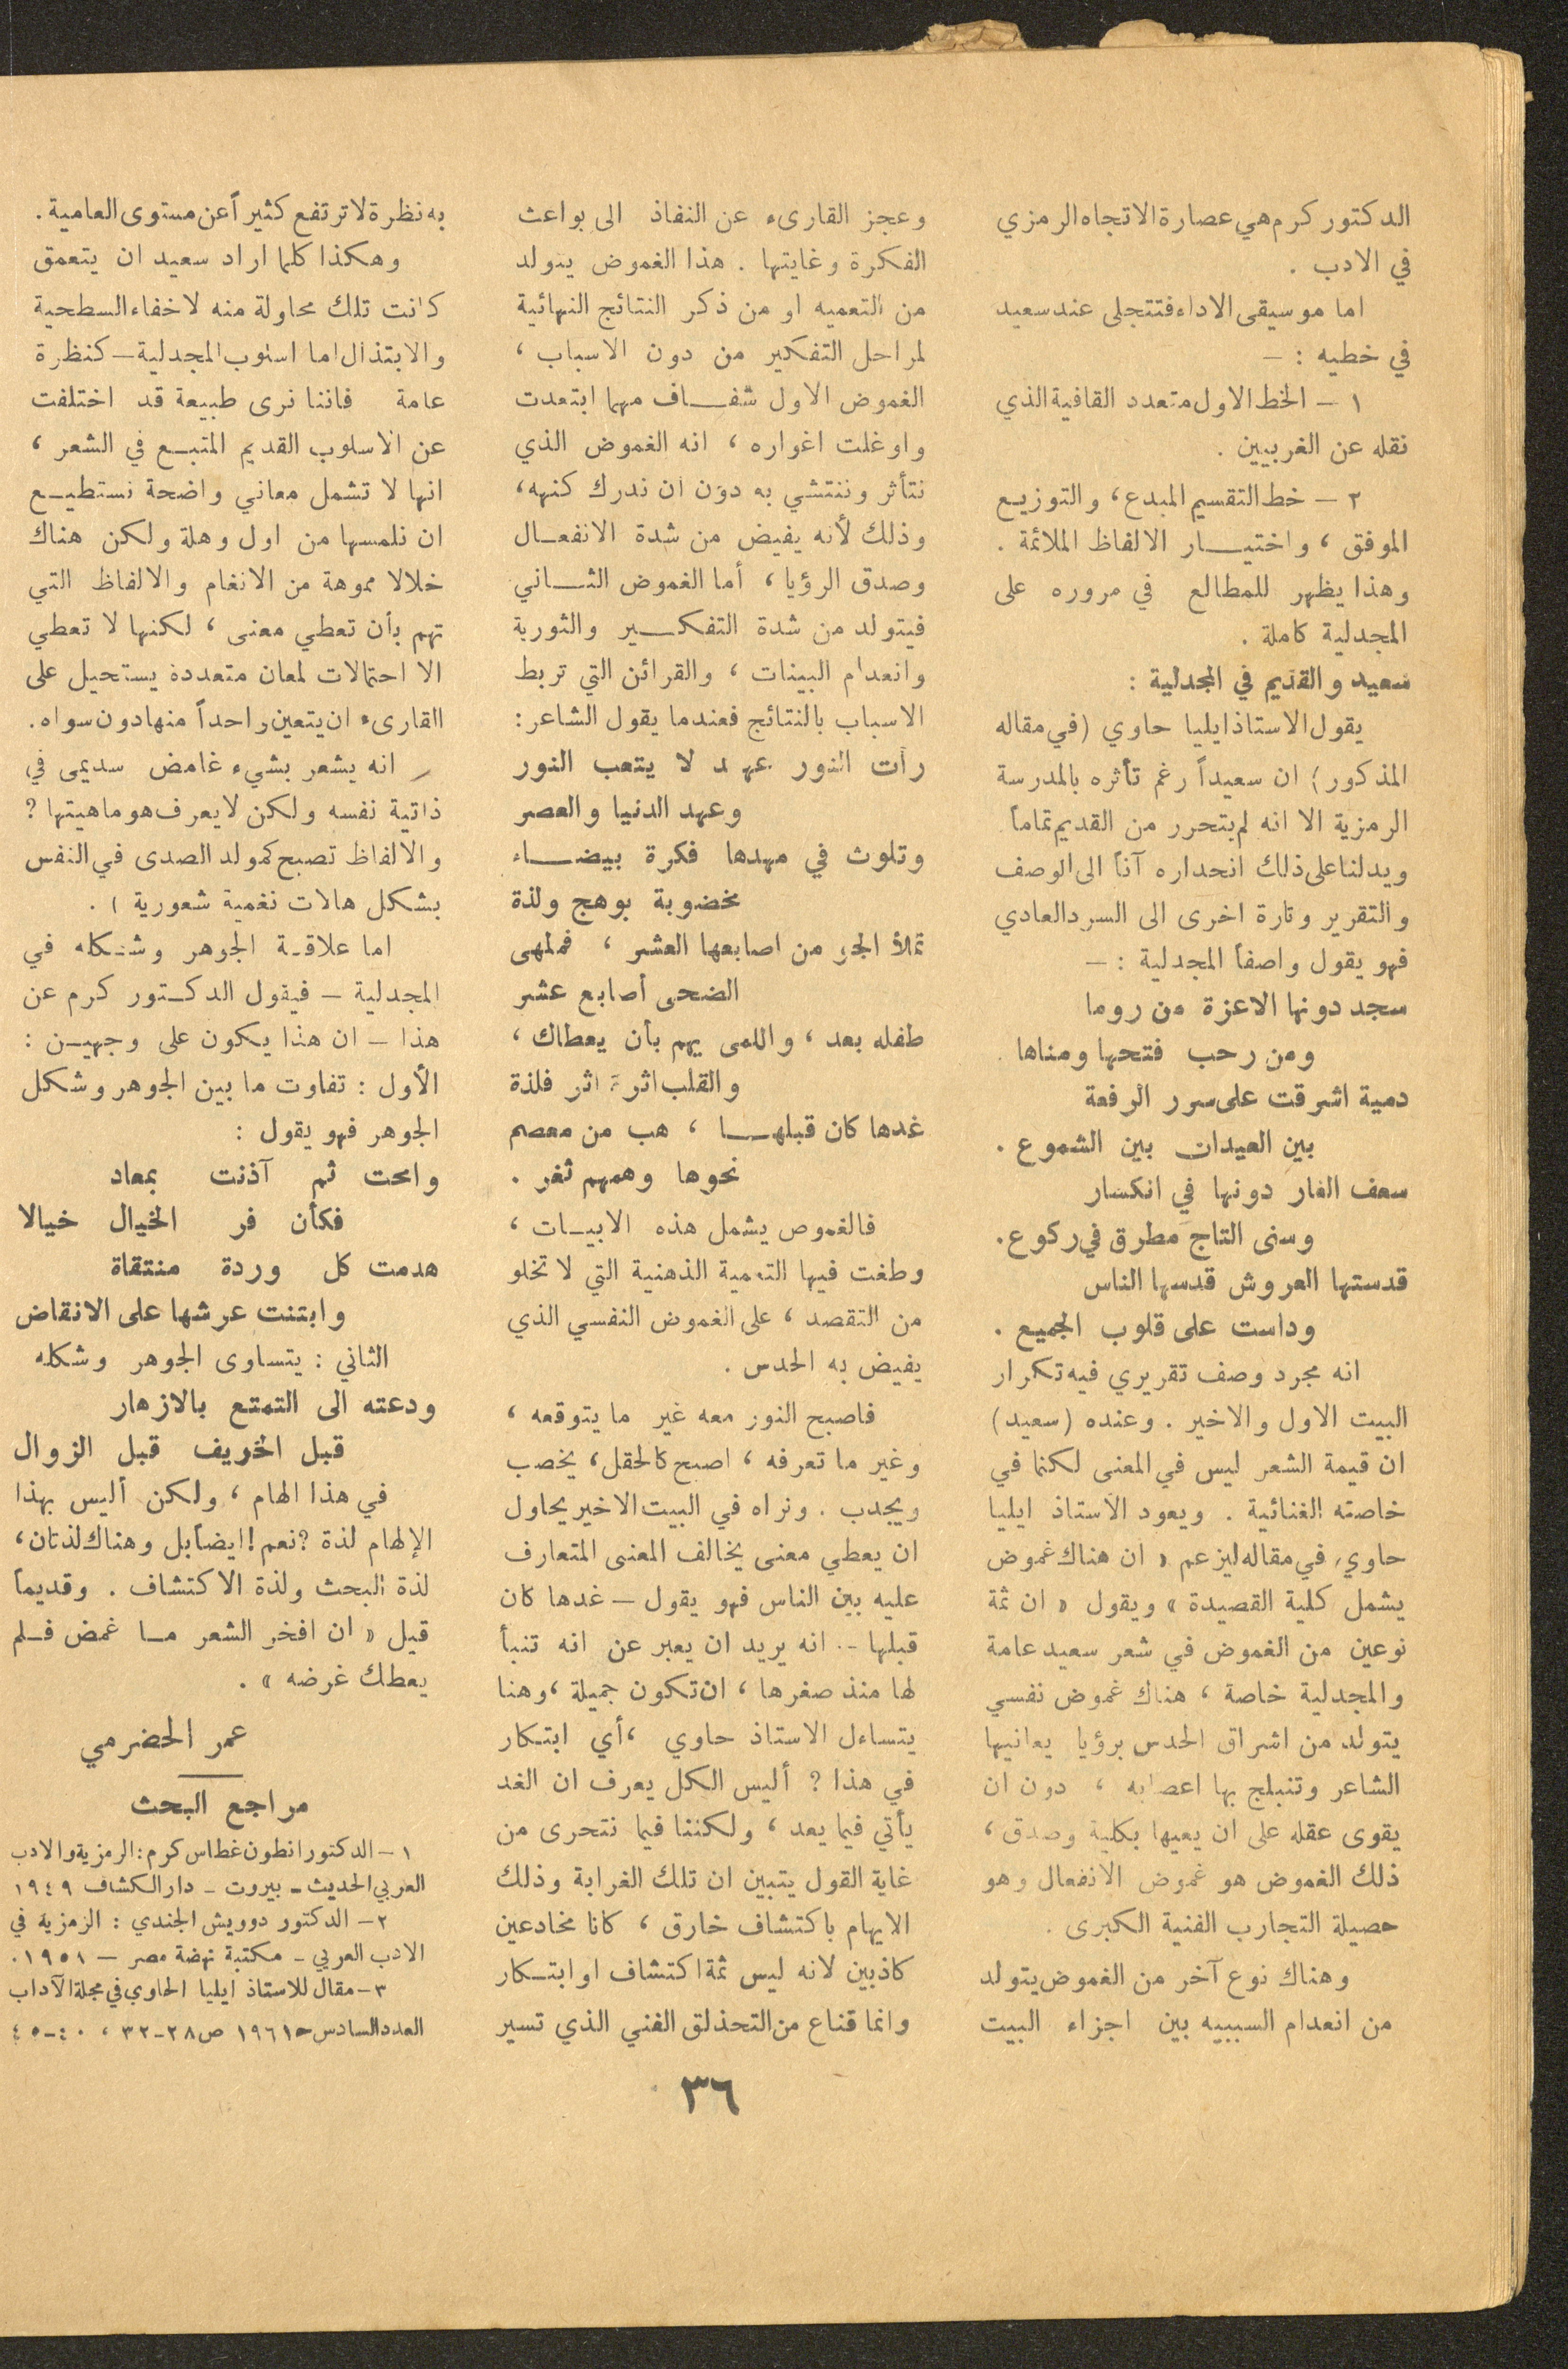 الدكتور كرم هي عصارة الاتجاه الرمزي
في الادب .
اما موسيقى الاداء فتتجلى عند سعيد
في خطيه : —
١ — الخط الاول متعدد القافية الذي
نقله عن الغربيين .
٢ — خط التقسيم المبدع ، والتوزيع
الموفق ، واختيار الالفاظ الملائمة .
وهذا يظهر للمطالع في مروره على
المجدلية كاملة .
سعيد والقديم في المجدلية :
يقول الاستاذ ايليا حاوي (في مقاله
المذكور) ان سعيداً رغم تأثره بالمدرسة
الرمزية الا انه لم يتحرر من القديم تماماً
ويدلنا على ذلك انحداره آناً الى الوصف
والتقرير وتارة اخرى الى السرد العادي
فهو يقول واصفاً المجدلية : —
سجد دونها الاعزة من روما
ومن رحب فتحها ومناها .
دمية اشرقت على سرر الرفعة
بين العيدان بين الشموع .
سعف الغار دونها في انكسار
وسنى التاج مطرق في ركوع .
قدستها العروش قدسها الناس
وداست على قلوب الجميع .
انه مجرد وصف تقريري فيه تكرار
البيت الاول والاخير . وعنده (سعيد)
ان قيمة الشعر ليس في المعنى لكنما في
خاصته الغنائية . ويعود الاستاذ ايليا
حاوي، في مقاله ليزعم « ان هناك غموض
يشمل كلية القصيدة » ويقول « ان ثمة
نوعين من الغموض في شعر سعيد عامة
والمجدلية خاصة ، هناك غموض نفسي
يتولد من اشراق الحدس برؤيا يعانيها
الشاعر وتنبلج بها اعصابه ، دون ان
يقوى عقله على ان يعيها بكلية وصدق ،
ذلك الغموض هو غموض الانفعال وهو
حصيلة التجارب الفنية الكبرى .
وهناك نوع آخر من الغموض يتولد
من انعدام السببيه بين اجزاء البيت
وعجز القارىء عن النفاذ الى بواعث
الفكرة وغايتها . هذا الغموض يتولد
من التعميه او من ذكر النتائج النهائية
لمراحل التفكير من دون الاسباب ،
الغموض الاول شفاف مهما ابتعدت
واوغلت اغواره ، انه الغموض الذي
نتأثر وننتشي به دون ان ندرك كنهه ،
وذلك لأنه يفيض من شدة الانفعال
وصدق الرؤيا ، أما الغموض الثاني
فيتولد من شدة التفكير والتورية
وانعدام البينات ، والقرائن التي تربط
الاسباب بالنتائج فعندما يقول الشاعر :
رأت النور عهد لا يتعب النور
وعهد الدنيا والعصر
وتلوث في مهدها فكرة بيضاء
مخضوبة بوهج ولذة
تملأ الجو من اصابعها العشر ، فملهى
الضحى أصابع عشر
طفله بعد ، واللمى يهم بأن يعطاك ،
والقلب اثرة اثر فلذة
غدها كان قبلها ، هب من معصم
نحوها وهمهم ثغر .
فالغموض يشمل هذه الابيات ،
وطغت فيها التعمية الذهنية التي لا تخلو
من التقصد ، على الغموض النفسي الذي
يفيض به الحدس .
فاصبح النور معه غير ما يتوقعه ،
وغير ما تعرفه ، اصبح كالحقل ، يخصب
ويجدب . ونراه في البيت الاخير يحاول
ان يعطي معنى يخالف المعنى المتعارف
عليه بين الناس فهو يقول — غدها كان
قبلها -. انه يريد ان يعبر عن انه تنبأ
لها منذ صغرها ، ان تكون جميلة ، وهنا
يتساءل الاستاذ حاوي ، أي ابتكار
في هذا ؟ أليس الكل يعرف ان الغد
يأتي فيما بعد ، ولكننا فيما نتحرى من
غاية القول يتبين ان تلك الغرابة وذلك
الايهام باكتشاف خارق ، كانا مخادعين
كاذبين لانه ليس ثمة اكتشاف او ابتكار
وانما قناع من التحذلق الفني الذي تسير
به نظرة لا ترتفع كثيراً عن مستوى العامية .
وهكذا كلما اراد سعيد ان يتعمق
كانت تلك محاولة منه لاخفاء السطحية
والابتذال اما اسلوب المجدلية — كنظرة
عامة فاننا نرى طبيعة قد اختلفت
عن الاسلوب القديم المتبع في الشعر ،
انها لا تشمل معاني واضحة نستطيع
ان نلمسها من اول وهلة ولكن هناك
خلالا مموهة من الانغام والالفاظ التي
تهم بأن تعطي معنى ، لكنها لا تعطي
الا احتمالات لمعان متعددة يستحيل على
القارىء ان يتعين واحداً منها دون سواه .
انه يشعر بشيء غامض سديمى في
ذاتية نفسه ولكن لا يعرف هو ما هيتها ؟
والالفاظ تصبح كمولد الصدى في النفس
بشكل هالات نغمية شعورية ) .
اما علاقة الجوهر وشكله في
المجدلية — فيقول الدكتور كرم عن
هذا — ان هذا يكون على وجهين :
الأول : تفاوت ما بين الجوهر وشكل
الجوهر فهو يقول :
وامحت ثم آذنت بمعاد
فكأن فر الخيال خيالا
هدمت كل وردة منتقاة
وابتنت عرشها على الانقاض
الثاني : يتساوى الجوهر وشكله
ودعته الى التمتع بالازهار
قبل الخريف قبل الزوال
في هذا الهام ، ولكن أليس بهذا
الإلهام لذة ؟ نعم ! ايضاً بل وهناك لذتان ،
لذة البحث ولذة الاكتشاف . وقديماً
قيل « ان افخر الشعر ما غمض فلم
يعطك غرضه » .
عمر الحضرمي
مراجع البحث
١ — الدكتور انطون غطاس كرم : الرمزية والادب
العربي الحديث – بيروت – دار الكشاف ١٩٤٩
٢ — الدكتور دوويش الجندي : الرمزية في
الادب العربي – مكتبة نهضة مصر — ١٩٥١ .
٣ — مقال للاستاذ ايليا الحاوي في مجلة الآداب
العدد السادس ١٩٦١ ص ٢٨-٣٢ ، ٤٠-٤٥
٣٦